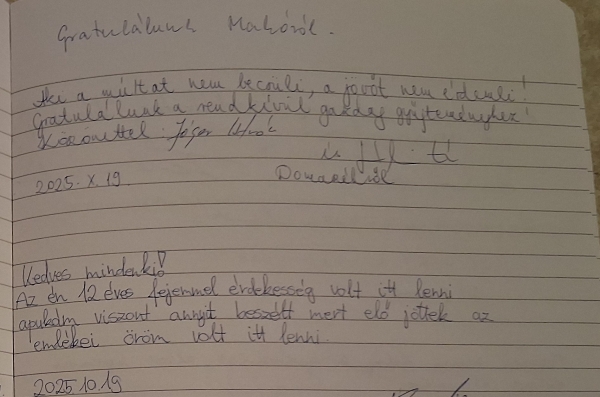 Gratulálunk Makóról.
Aki a múltat nem becsüli, a jövőt nem érdemli!
Gratulálunk a rendkívül gazdag gyűjteményhez!
Köszönettel:
és
2025. X. 19.
Kedves mindenki!
Az én 12 éves fejemmel érdekesség volt itt lenni
apukám viszont annyit beszélt mert elő jöttek az
emlékei öröm volt itt lenni.
2025.10.19